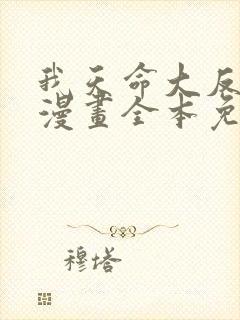 我天命大反
漫畫全本免
穆塔